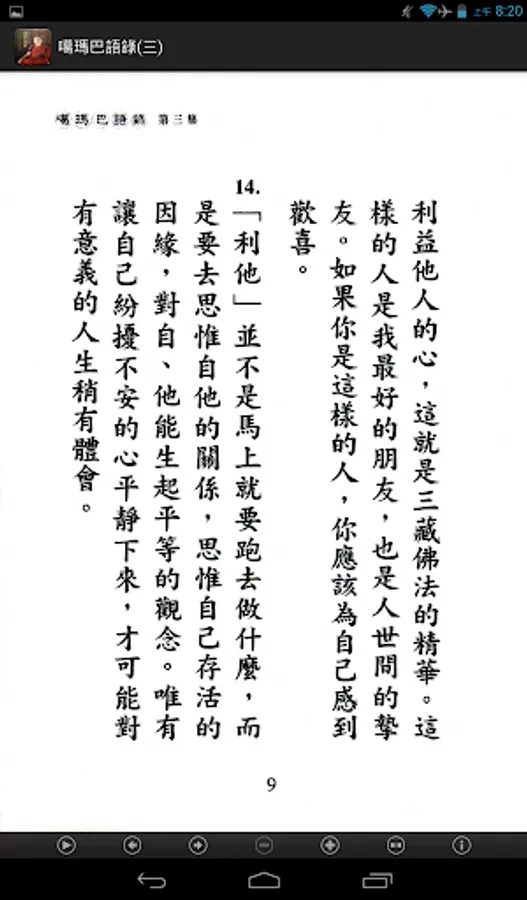 上午 8:20
噶瑪巴語錄(三)
噶瑪巴語錄 第三集
利益他人的心，這就是三藏佛法的精華。這
樣的人是我最好的朋友，也是人世間的摯
友。如果你是這樣的人，你應該為自己感到
歡喜。
14.
「利他」並不是馬上就要跑去做什麼，而
是要去思惟自他的關係，思惟自己存活的
因緣，對自、他能生起平等的觀念。唯有
讓自己紛擾不安的心平靜下來，才可能對
有意義的人生稍有體會。
9